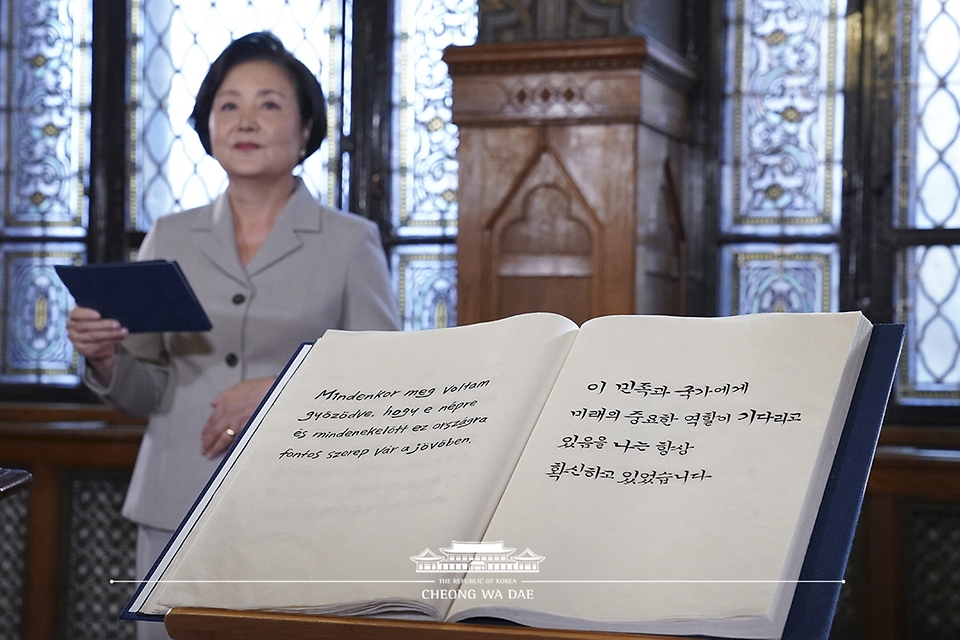 Mindenkor meg voltam
győződve, hogy e népre
és mindenekelőtt ez országra
fontos szerep vár a jövőben.
이 민족과 국가에게
미래의 중요한 역할이 기다리고
있음을 나는 항상
확신하고 있었습니다
THE REPUBLIC OF KOREA
CHEONG WA DAE